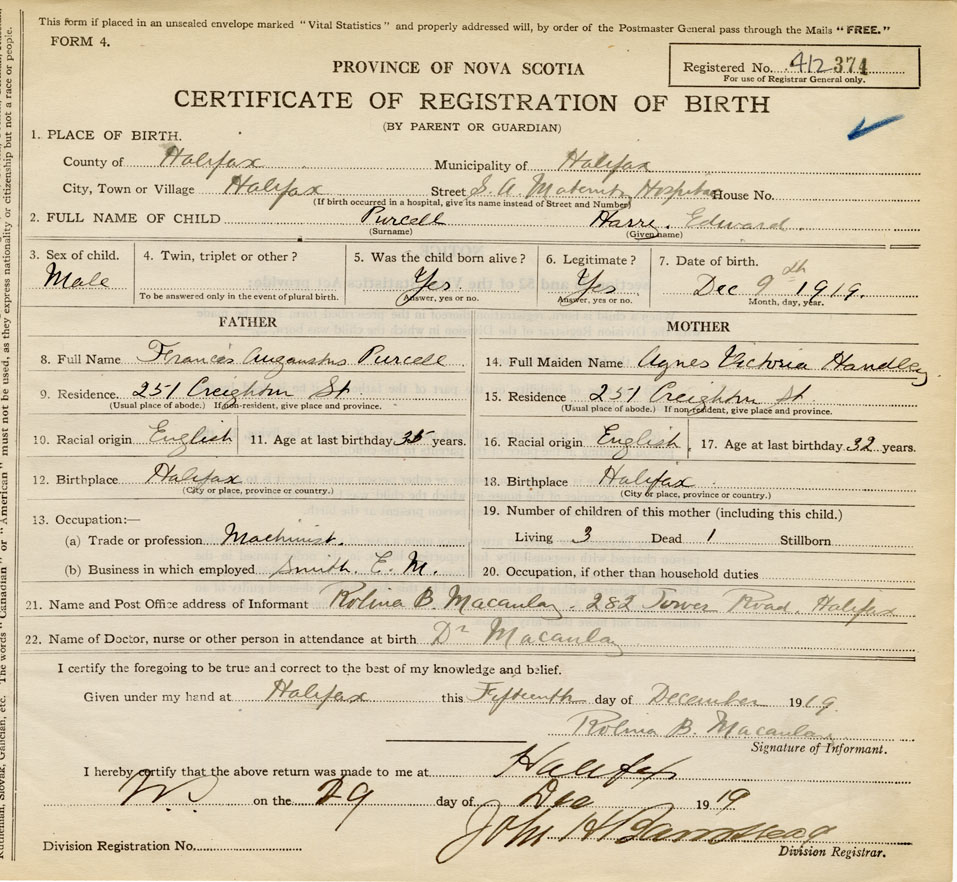 This form if placed in an unsealed envelope marked "Vital Statistics" and properly addressed will, by order of the Postmaster General pass through the Mails "FREE."
FORM 4.
Registered No. 412 374
For use of Registrar General only.
PROVINCE OF NOVA SCOTIA
CERTIFICATE OF REGISTRATION OF BIRTH
(BY PARENT OR GUARDIAN)
1. PLACE OF BIRTH.
County of Halifax Municipality of Halifax
City, Town or Village Halifax Street S. A. Maternity Hospital House No.
(If birth occurred in a hospital, give its name instead of Street and Number)
2. FULL NAME OF CHILD Purcell Harre. Edward.
(Surname) (Given name)
3. Sex of child. Male
4. Twin, triplet or other ?
To be answered only in the event of plural birth.
5. Was the child born alive ? Yes
Answer, yes or no.
6. Legitimate ? Yes
Answer, yes or no.
7. Date of birth. Dec 9th 1919.
Month, day, year.
FATHER
8. Full Name Francis Augaustus Purcell
9. Residence. 251 Creighton St
(Usual place of abode.) If non-resident, give place and province.
10. Racial origin English 11. Age at last birthday 35 years.
12. Birthplace Halifax
(City or place, province or country.)
13. Occupation:—
(a) Trade or profession Machinist.
(b) Business in which employed Smith. E. M.
MOTHER
14. Full Maiden Name Agnes Victoria Handley
15. Residence 251 Creighton St
(Usual place of abode.) If non-resident, give place and province.
16. Racial origin English 17. Age at last birthday 32 years.
18. Birthplace Halifax
(City or place, province or country.)
19. Number of children of this mother (including this child.)
Living 3 Dead 1 Stillborn
20. Occupation, if other than household duties
21. Name and Post Office address of Informant Rolina B. Macaulay. 282 Tower Road. Halifax
22. Name of Doctor, nurse or other person in attendance at birth Dr Macaulay
I certify the foregoing to be true and correct to the best of my knowledge and belief.
Given under my hand at Halifax this Fifteenth day of December 1919.
Rolina B. Macaulay
Signature of Informant.
I hereby certify that the above return was made to me at Halifax
on the 29 day of Dec 1919
John H Barnstead
Division Registrar.
Division Registration No.